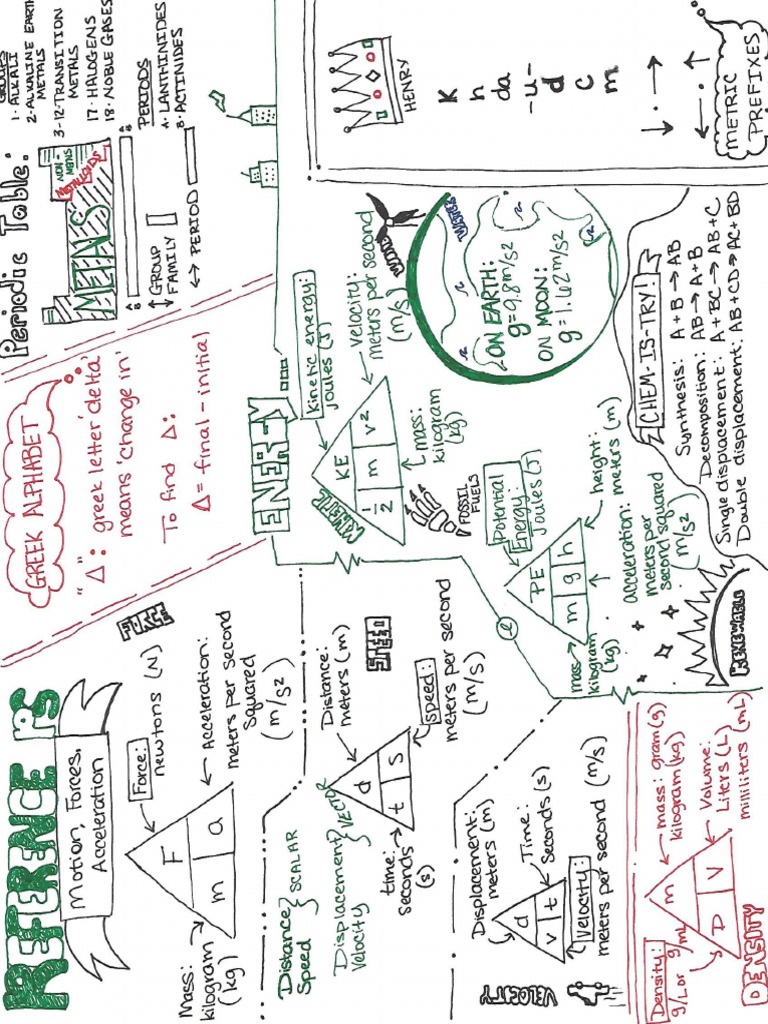 REFERENCE
Motion, Forces,
Acceleration
Force:
newtons (N)
F
m
a
Mass:
kilogram
(kg)
Acceleration:
meters per second
squared
(m/s²)
FORCE
GREEK ALPHABET
"Δ": greek letter 'delta'
means 'change in'
To find Δ:
Δ = final - initial
Periodic Table:
METALS
NON-
METALLOIDS
GROUP
FAMILY
PERIOD
A
B
A
B
GROUPS
1 - ALKALI
2 - ALKALINE EARTH
METALS
3-12 - TRANSITION
METALS
17 - HALOGENS
18 - NOBLE GASES
PERIODS
A - LANTHINIDES
B - ACTINIDES
Distance
Speed
SCALAR
Displacement
Velocity
VECTOR
Distance:
meters (m)
d
t
s
time:
seconds
(s)
speed:
meters per second
(m/s)
SPEED
Displacement:
meters (m)
d
v
t
Time:
Seconds (s)
Velocity:
meters per second (m/s)
VELOCITY
Density:
g/L or g/mL
m
D
V
mass: gram (g)
kilogram (kg)
Volume:
Liters (L)
milliliters (mL)
DENSITY
ENERGY
Kinetic energy:
Joules (J)
KE
½
m
v²
KINETIC
Velocity:
meters per second
(m/s)
mass:
kilogram
(kg)
WIND
FOSSIL
FUELS
Potential
Energy:
Joules (J)
PE
m
g
h
mass
kilogram
(kg)
height:
meters (m)
acceleration:
meters per
second squared
(m/s²)
RENEWABLE
WATER
ON EARTH:
g = 9.8 m/s²
ON MOON:
g = 1.62 m/s²
CHEM-IS-TRY!
Synthesis: A + B → AB
Decomposition: AB → A + B
Single displacement: A + BC → AB + C
Double displacement: AB + CD → AC + BD
HENRY
K
h
da
-u-
d
c
m
METRIC
PREFIXES